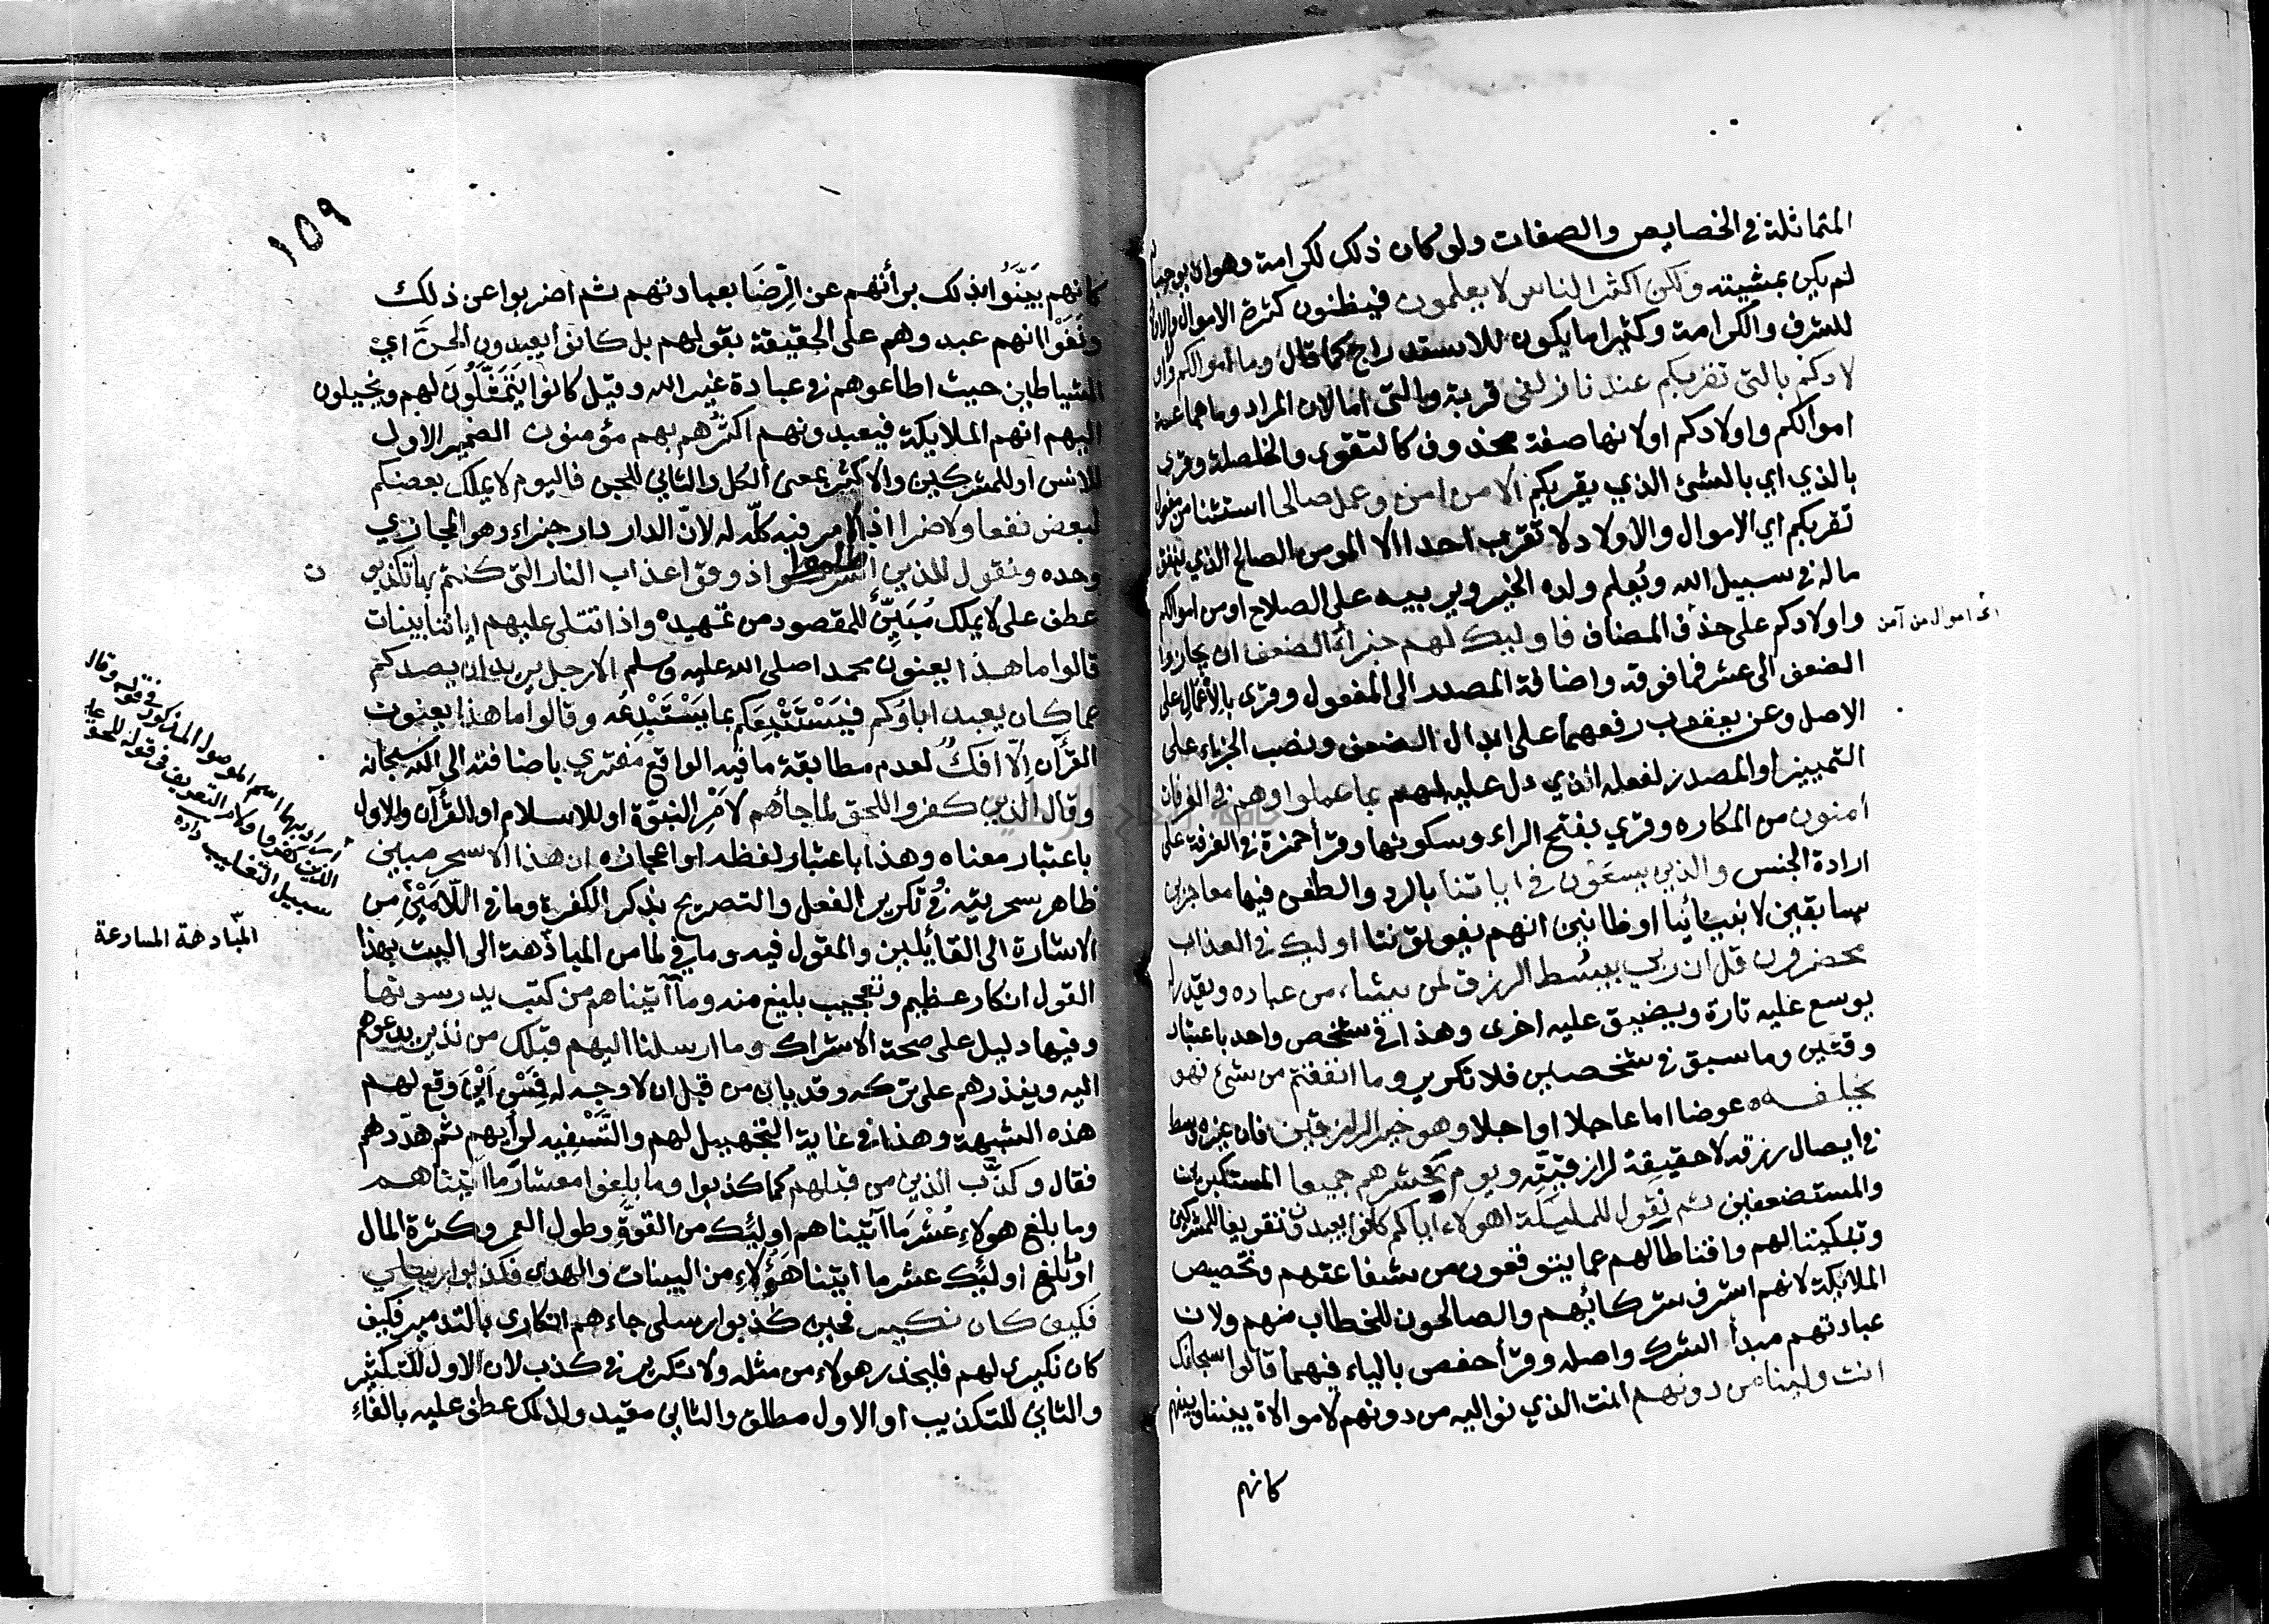 المتماثلة في الخصايص والصفات ولو كان ذلك لكرامة وهوان يوجبانه
لم يكن بمشيته ولكن اكثر الناس لا يعلمون فيظنون كثرة الاموال والاولاد
للشرف والكرامة وكثيرا ما يكون للاستدراج كما قال وما اموالكم ولا او
لادكم بالتي تقربكم عندنا زلفى قربة والتي اما لان المراد وما جماعة
اموالكم واولادكم او لانها صفة محذوف كالتقوى والخلصلة وقرى
بالذي اي بالشئ الذي يقربكم الا من امن وعمل صالحا استثنا من مفعول
تقربكم اي الاموال والاولاد لا تقرب احدا الا المومن الصالح الذي ينفق
ماله في سبيل الله ويُعلم ولده الخير ويربيه على الصلاح او من اموالكم
واولادكم على حذف المضاف فاوليك لهم جزاء الضعف ان يجازوا
اى اموال من آمن
الضعف الى عشر فما فوقه واضافة المصدر الى المفعول وقرى بالاعمال على
الاصل وعن يعقوب رفعهما على ابدال الضعف ونصب الجزاء على
التمييز او المصدر لفعله الذي دل عليه لهم بما عملوا وهم في الغرفات
امنون من المكاره وقري بفتح الراء وسكونها وقرأ حمزة في الغرفة على
ارادة الجنس والذين يسعون في اياتنا بالرد والطعن فيها معاجزين
سابقين لانبيائنا او ظانين انهم يفوتوننا اوليك في العذاب
محضرون قل ان ربي يبسُط الرزق لمن يشاء من عباده ويقدر له
يوسع عليه تارة ويضيق عليه اخرى وهذا في شخص واحد باعتبار
وقتين وما سبق في شخصين فلا تكرير وما انفقتم من شئ فهو
يخلفه عوضا اما عاجلا او اجلا وهو خير الرازقين فان غيره وسط
في ايصال رزقه لا حقيقة لرازقيته ويوم يحشرهم جميعا المستكبرين
والمستضعفين ثم نقول للمليكة اهولاء اياكم كانوا يعبدون تقريعا للمشركين
وتبكيتا لهم واقناطا لهم عما يتوقعون من شفاعتهم وتخصيص
الملائكة لانهم اشرف شركائهم والصالحون للخطاب منهم ولان
عبادتهم مبدأ الشرك واصله وقرأ حفص بالياء فيهما قالوا سبحانك
انت ولينا من دونهم انت الذي نواليه من دونهم لا موالاة بيننا وبينهم
كانهم
١٥٩
كانهم بَيَّنُوا بذلك برأتهم عن الرِّضَا بعبادتهم ثم اضربوا عن ذلك
ونَفَوْا انهم عبدوهم على الحقيقة بقولهم بل كانوا يعبدون الجنَّ اي
الشياطين حيث اطاعوهم في عبادة غير الله وقيل كانوا يَتَمَثَّلُونَ لهم ويخيلون
اليهم انهم الملايكة فيعبدونهم اكثرهم بهم مؤمنون الضمير الاول
للانس او للمشركين والاكثر بمعنى الكل والثاني للجن فاليوم لا يملك بعضكم
لبعض نفعا ولا ضرا اذ الامر فيه كلّه له لانّ الدار دار جزاء وهو المجازي
وحده ونقول للذين ظلموا ذوقوا عذاب النار التي كنتم بها تكذبون
عطف على لا يملك مُبَيِّنٌ للمقصود من تمهيده واذا تتلى عليهم اياتنا بينات
قالوا ما هذا يعنون محمدا صلى الله عليه وسلم الا رجل يريد ان يصدكم
عما كان يعبد اباؤكم فيَسْتَتْبِعَكم بما يَسْتَبْدِعُه وقالوا ما هذا يعنون
القرآن إلّا افكٌ لعدم مطابقة ما فيه الواقع مفترى باضافته الى الله سبحانه
وقال الذين كفروا للحق لما جاءهم لأمْرِ النبوّة او للاسلام او القرآن والاول
باعتبار معناه وهذا باعتبار لفظه او اعجازه ان هذا الا سحر مبين
ظاهر سحريته وفي تكرير الفعل والتصريح بذكر الكفرة وما في اللّامَيْنِ من
الاشارة الى القائلين والمقول فيه وما في لما من المبادهة الى البت بهذا
القول انكار عظيم وتعجيب بليغ منه وما آتيناهم من كتب يدرسونها
وفيها دليل على صحة الاشراك وما ارسلنا اليهم قبلك من نذير يدعوهم
اليه وينذرهم على تركه وقد بان من قبل ان لا وجه له فمن اين وقع لهم
هذه الشبهة وهذا في غاية التجهيل لهم والتَّسْفِيه لرأيهم ثم هدّدهم
فقال وكذَّب الذين من قبلهم كما كذبوا وما بلغوا معشار ما آتيناهم
وما بلغ هولاء عُشْرَ ما آتينا هم اوليك من القوّة وطول العمر وكثرة المال
او ما بلغ اوليك عشر ما اتينا هَؤُلاءِ من البينات والهدى فكذبوا رسلي
فكيف كان نكير فحين كذبوا رسلى جاءهم انكارى بالتدمير فكيف
كان نكيرى لهم فليحذر هولاء من مثله ولا تكرير في كذب لان الاول للتكثير
والثاني للتكذيب او الاول مطلق والثاني مقيد ولذلك عطف عليه بالفاء
اراد بهما اسم الموصول المذكور في قوله وقال
الذين كفروا ولام التعريف في قوله للحق على
سبيل التغليب داده
المبادهة المسارعة